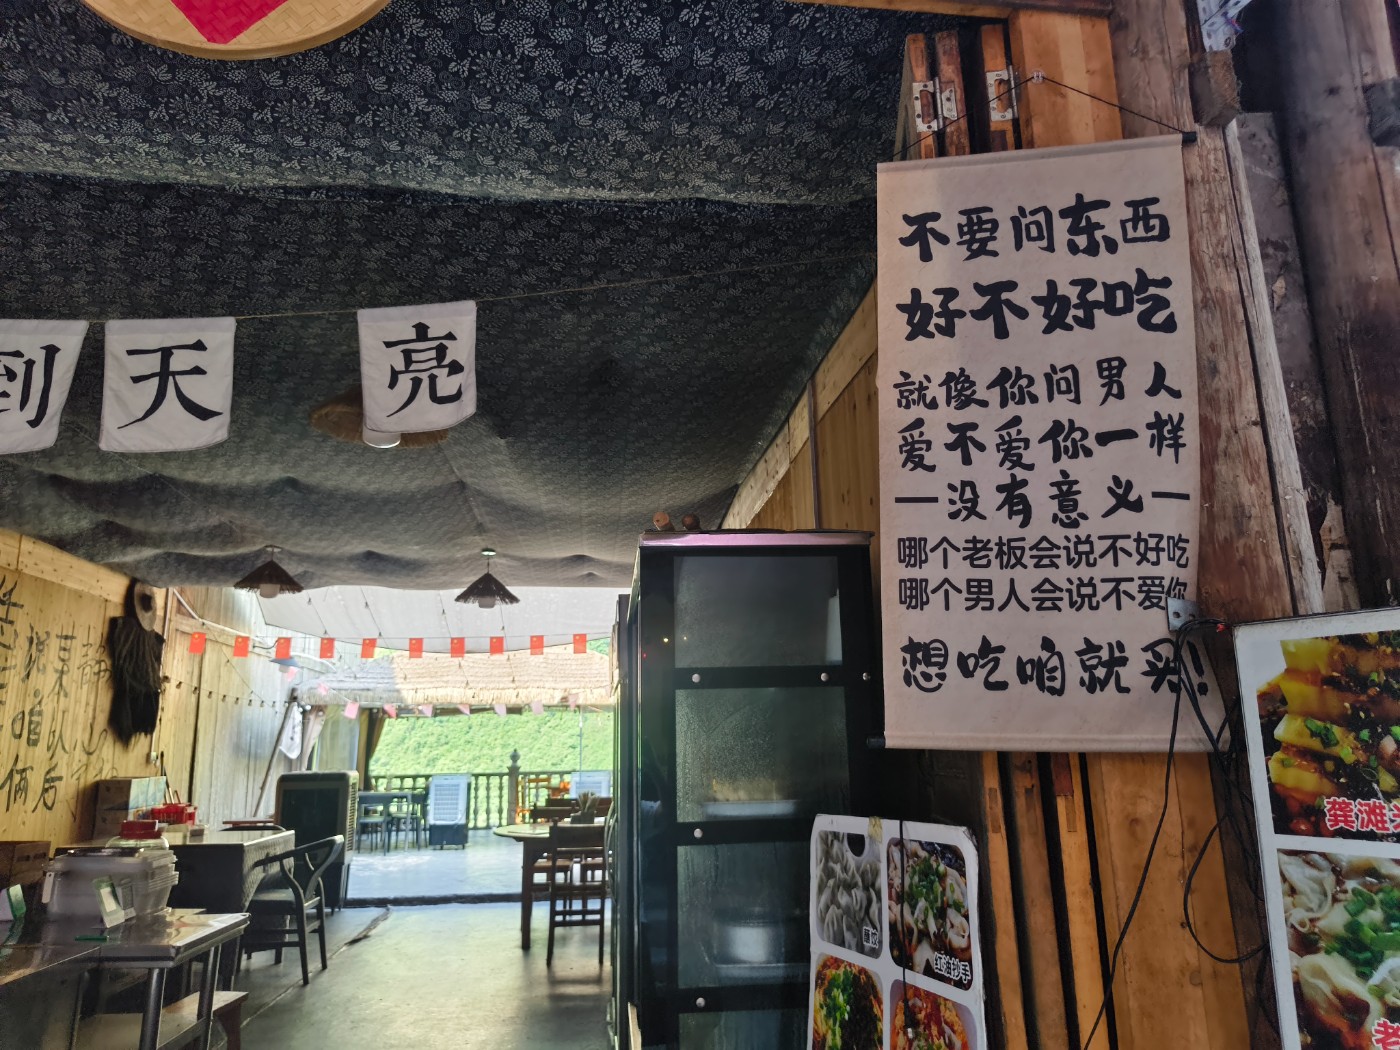 到天亮
不要问东西
好不好吃
就像你问男人
爱不爱你一样
—没有意义—
哪个老板会说不好吃
哪个男人会说不爱你
想吃咱就买!
龚滩
红油抄手
老